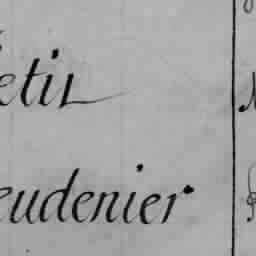 etit
eudenier